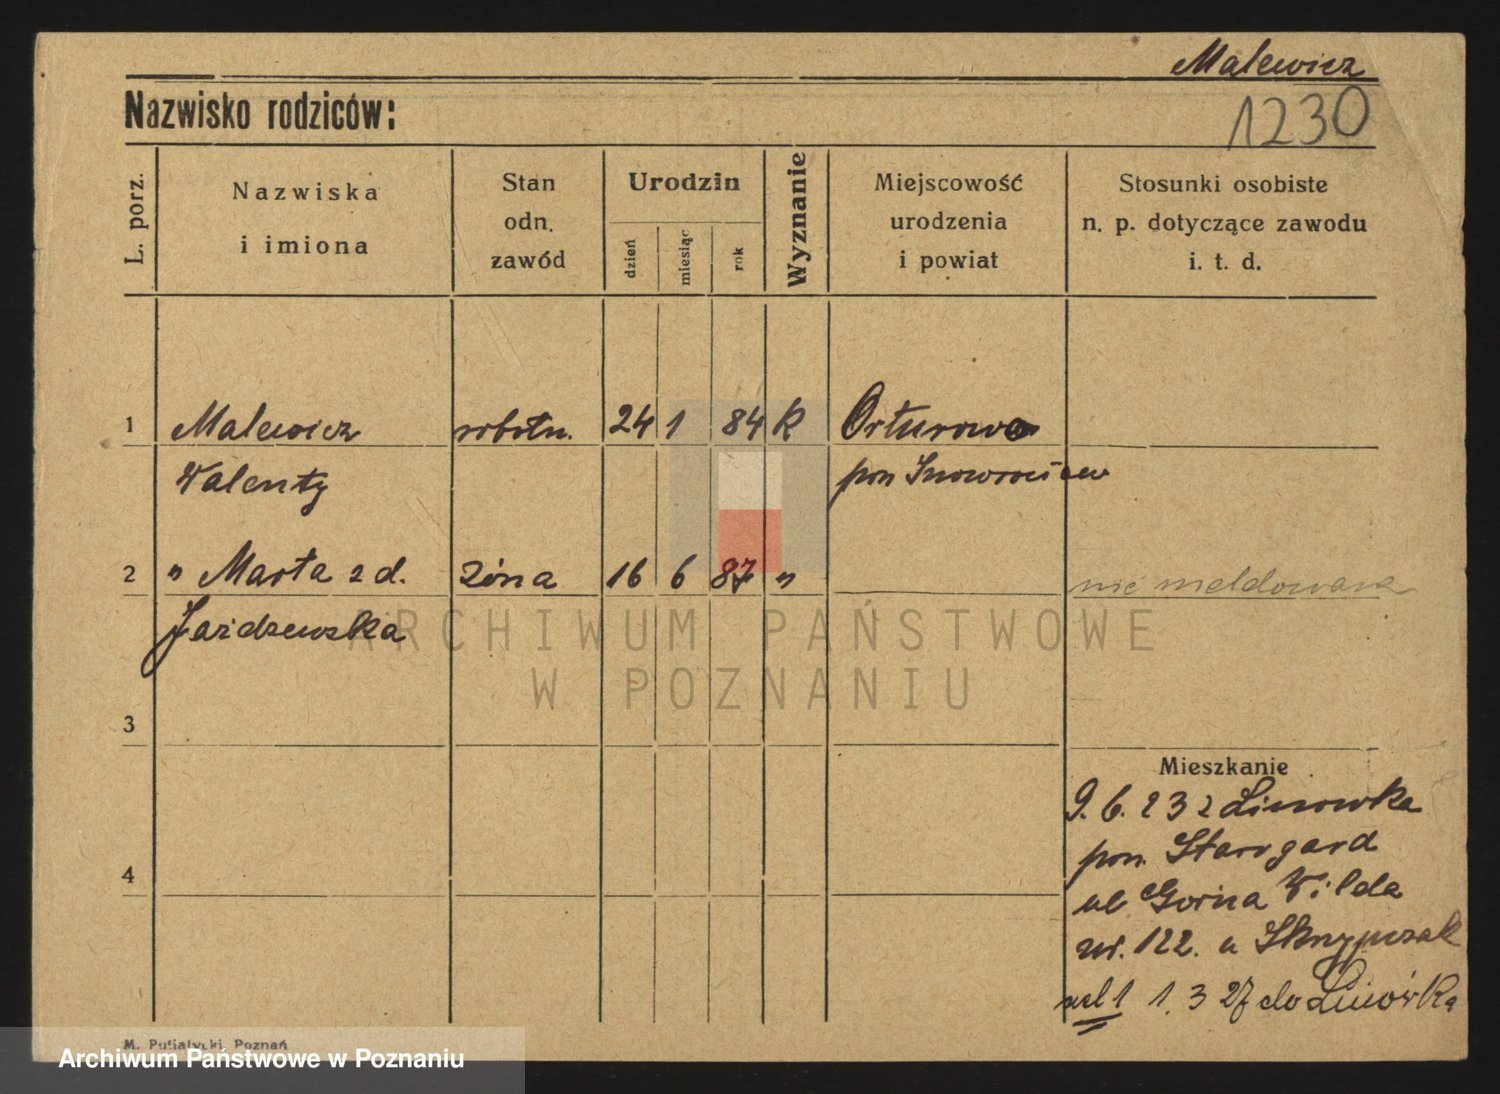 Malewicz
1230
Nazwisko rodziców:
L. porz.
Nazwiska
i imiona
Stan
odn.
zawód
Urodzin
dzień
miesiąc
rok
Wyznanie
Miejscowość
urodzenia
i powiat
Stosunki osobiste
n. p. dotyczące zawodu
i. t. d.
1 Malewicz robotn. 24 1 84 k
Walenty pow
2 " Marta z d. żona 16 6 87 " nie meldowana
3
Mieszkanie
9. 6. 23 z Linowka
pow. Starogard
4
ul Gorna Wilda
nr. 122. u Skrzypczak
1. 3 27 do Linówka
M. Putiatycki, Poznań
ARCHIWUM PAŃSTWOWE
W POZNANIU
Archiwum Państwowe w Poznaniu